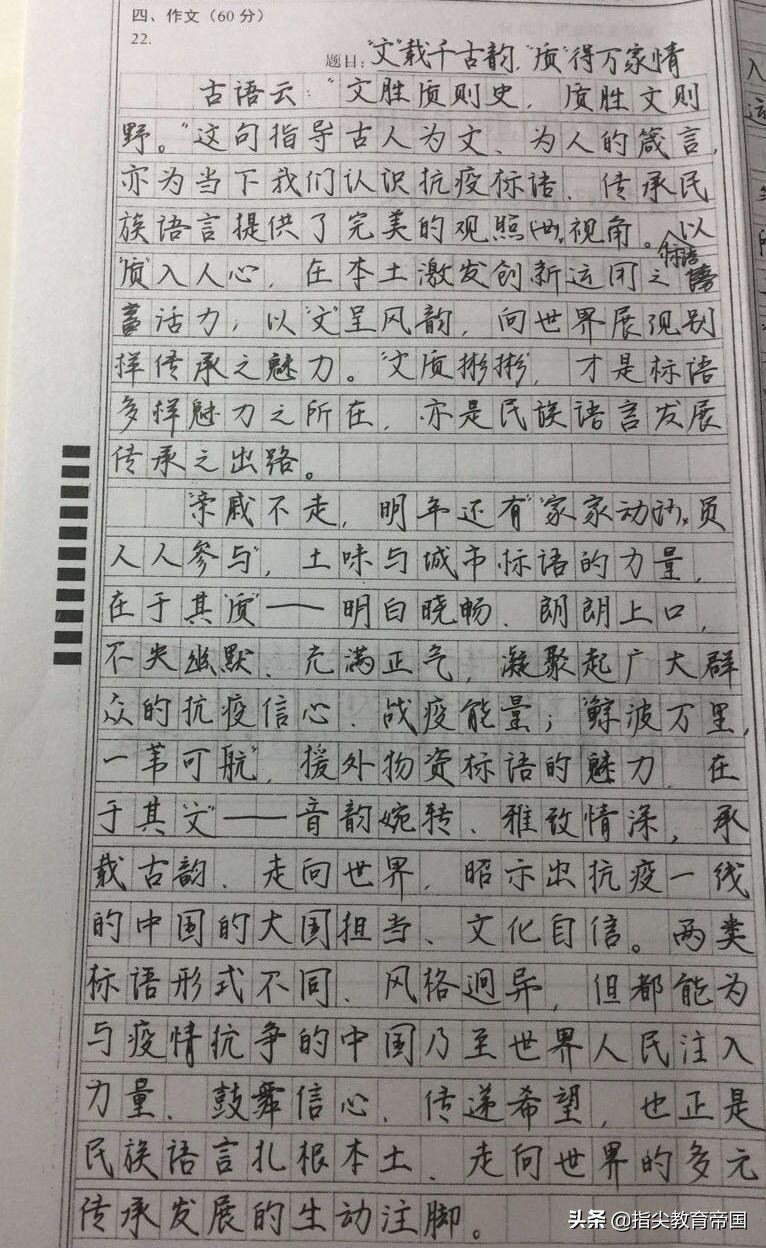 四、作文(60分)
22.
题目:“文”载千古韵,“质”得万家情
古语云:“文胜质则史,质胜文则
野。”这句指导古人为文、为人的箴言,
亦为当下我们认识抗疫标语、传承民
族语言提供了完美的观照视角。以
标语
“质”入人心,在本土激发创新运用之
蓄活力;以“文”呈风韵,向世界展现别
样传承之魅力。“文质彬彬”,才是标语
多样魅力之所在,亦是民族语言发展
传承之出路。
“亲戚不走,明年还有”“家家动员
人人参与”,土味与城市标语的力量,
在于其“质”——明白晓畅、朗朗上口,
不失幽默、充满正气,凝聚起广大群
众的抗疫信心、战疫能量;“鲸波万里,
一苇可航”,援外物资标语的魅力,在
于其“文”——音韵婉转、雅致情深,承
载古韵、走向世界,昭示出抗疫一线
的中国的大国担当、文化自信。两类
标语形式不同、风格迥异,但都能为
与疫情抗争的中国乃至世界人民注入
力量、鼓舞信心、传递希望,也正是
民族语言扎根本土、走向世界的多元
传承发展的生动注脚。
头条 @指尖教育帝国